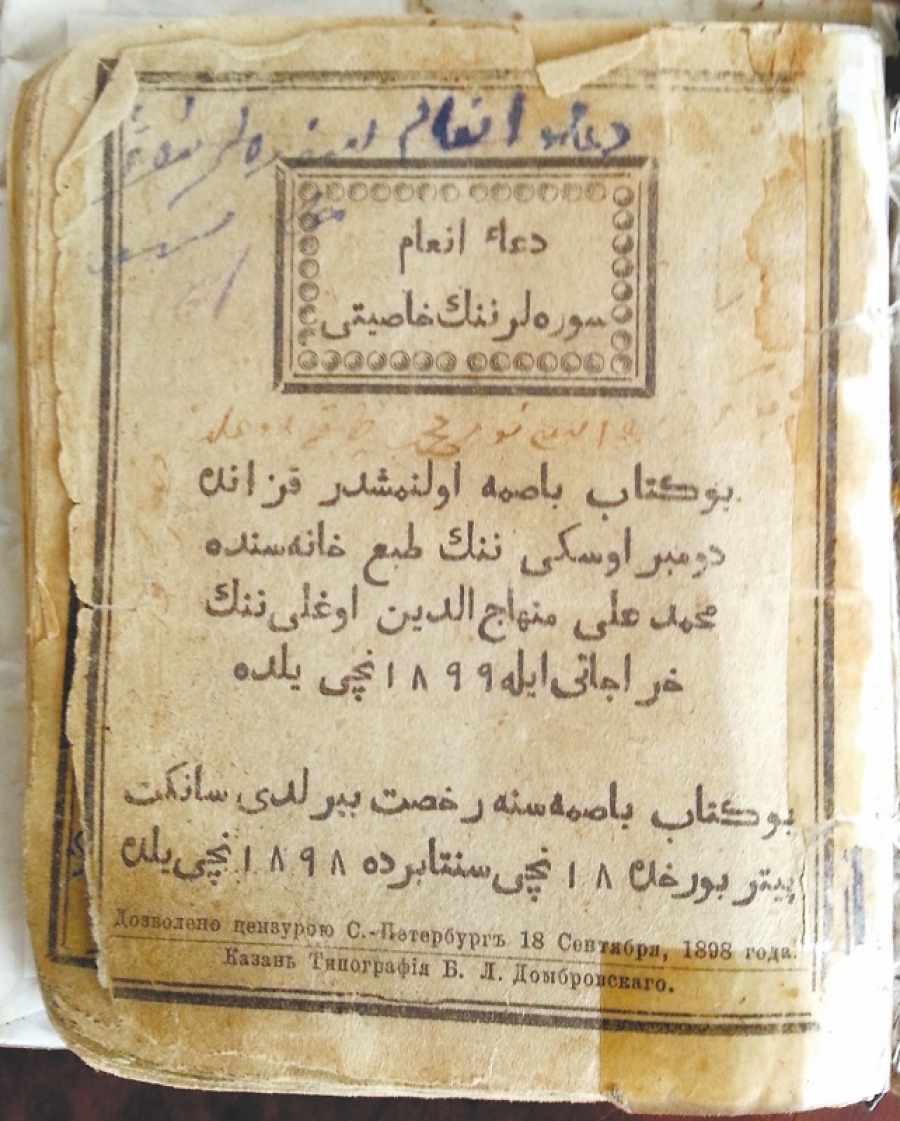 دعاء انعام
دعاء انعام
سوره‌لرننك خاصيتى
بو كتاب باصمه اولنمشدر قزانده
دومبراوسكى ننك طبع خانه‌سنده
محمد على منهاج الدين اوغلى ننك
خراجاتى ايله ١٨٩٩ نچى يلده
بو كتاب باصمه‌سنه رخصت بيرلدى سانكت
پيتربورخده ١٨ نچى سنتابرده ١٨٩٨ نچى يلده
Дозволено цензурою С.-Петербургъ 18 Сентября, 1898 года.
Казань Типографія Б. Л. Домбровскаго.